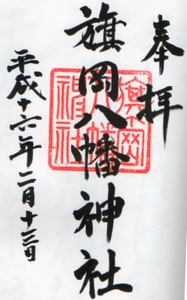 奉拝
旗岡八幡神社
平成十六年二月十三日